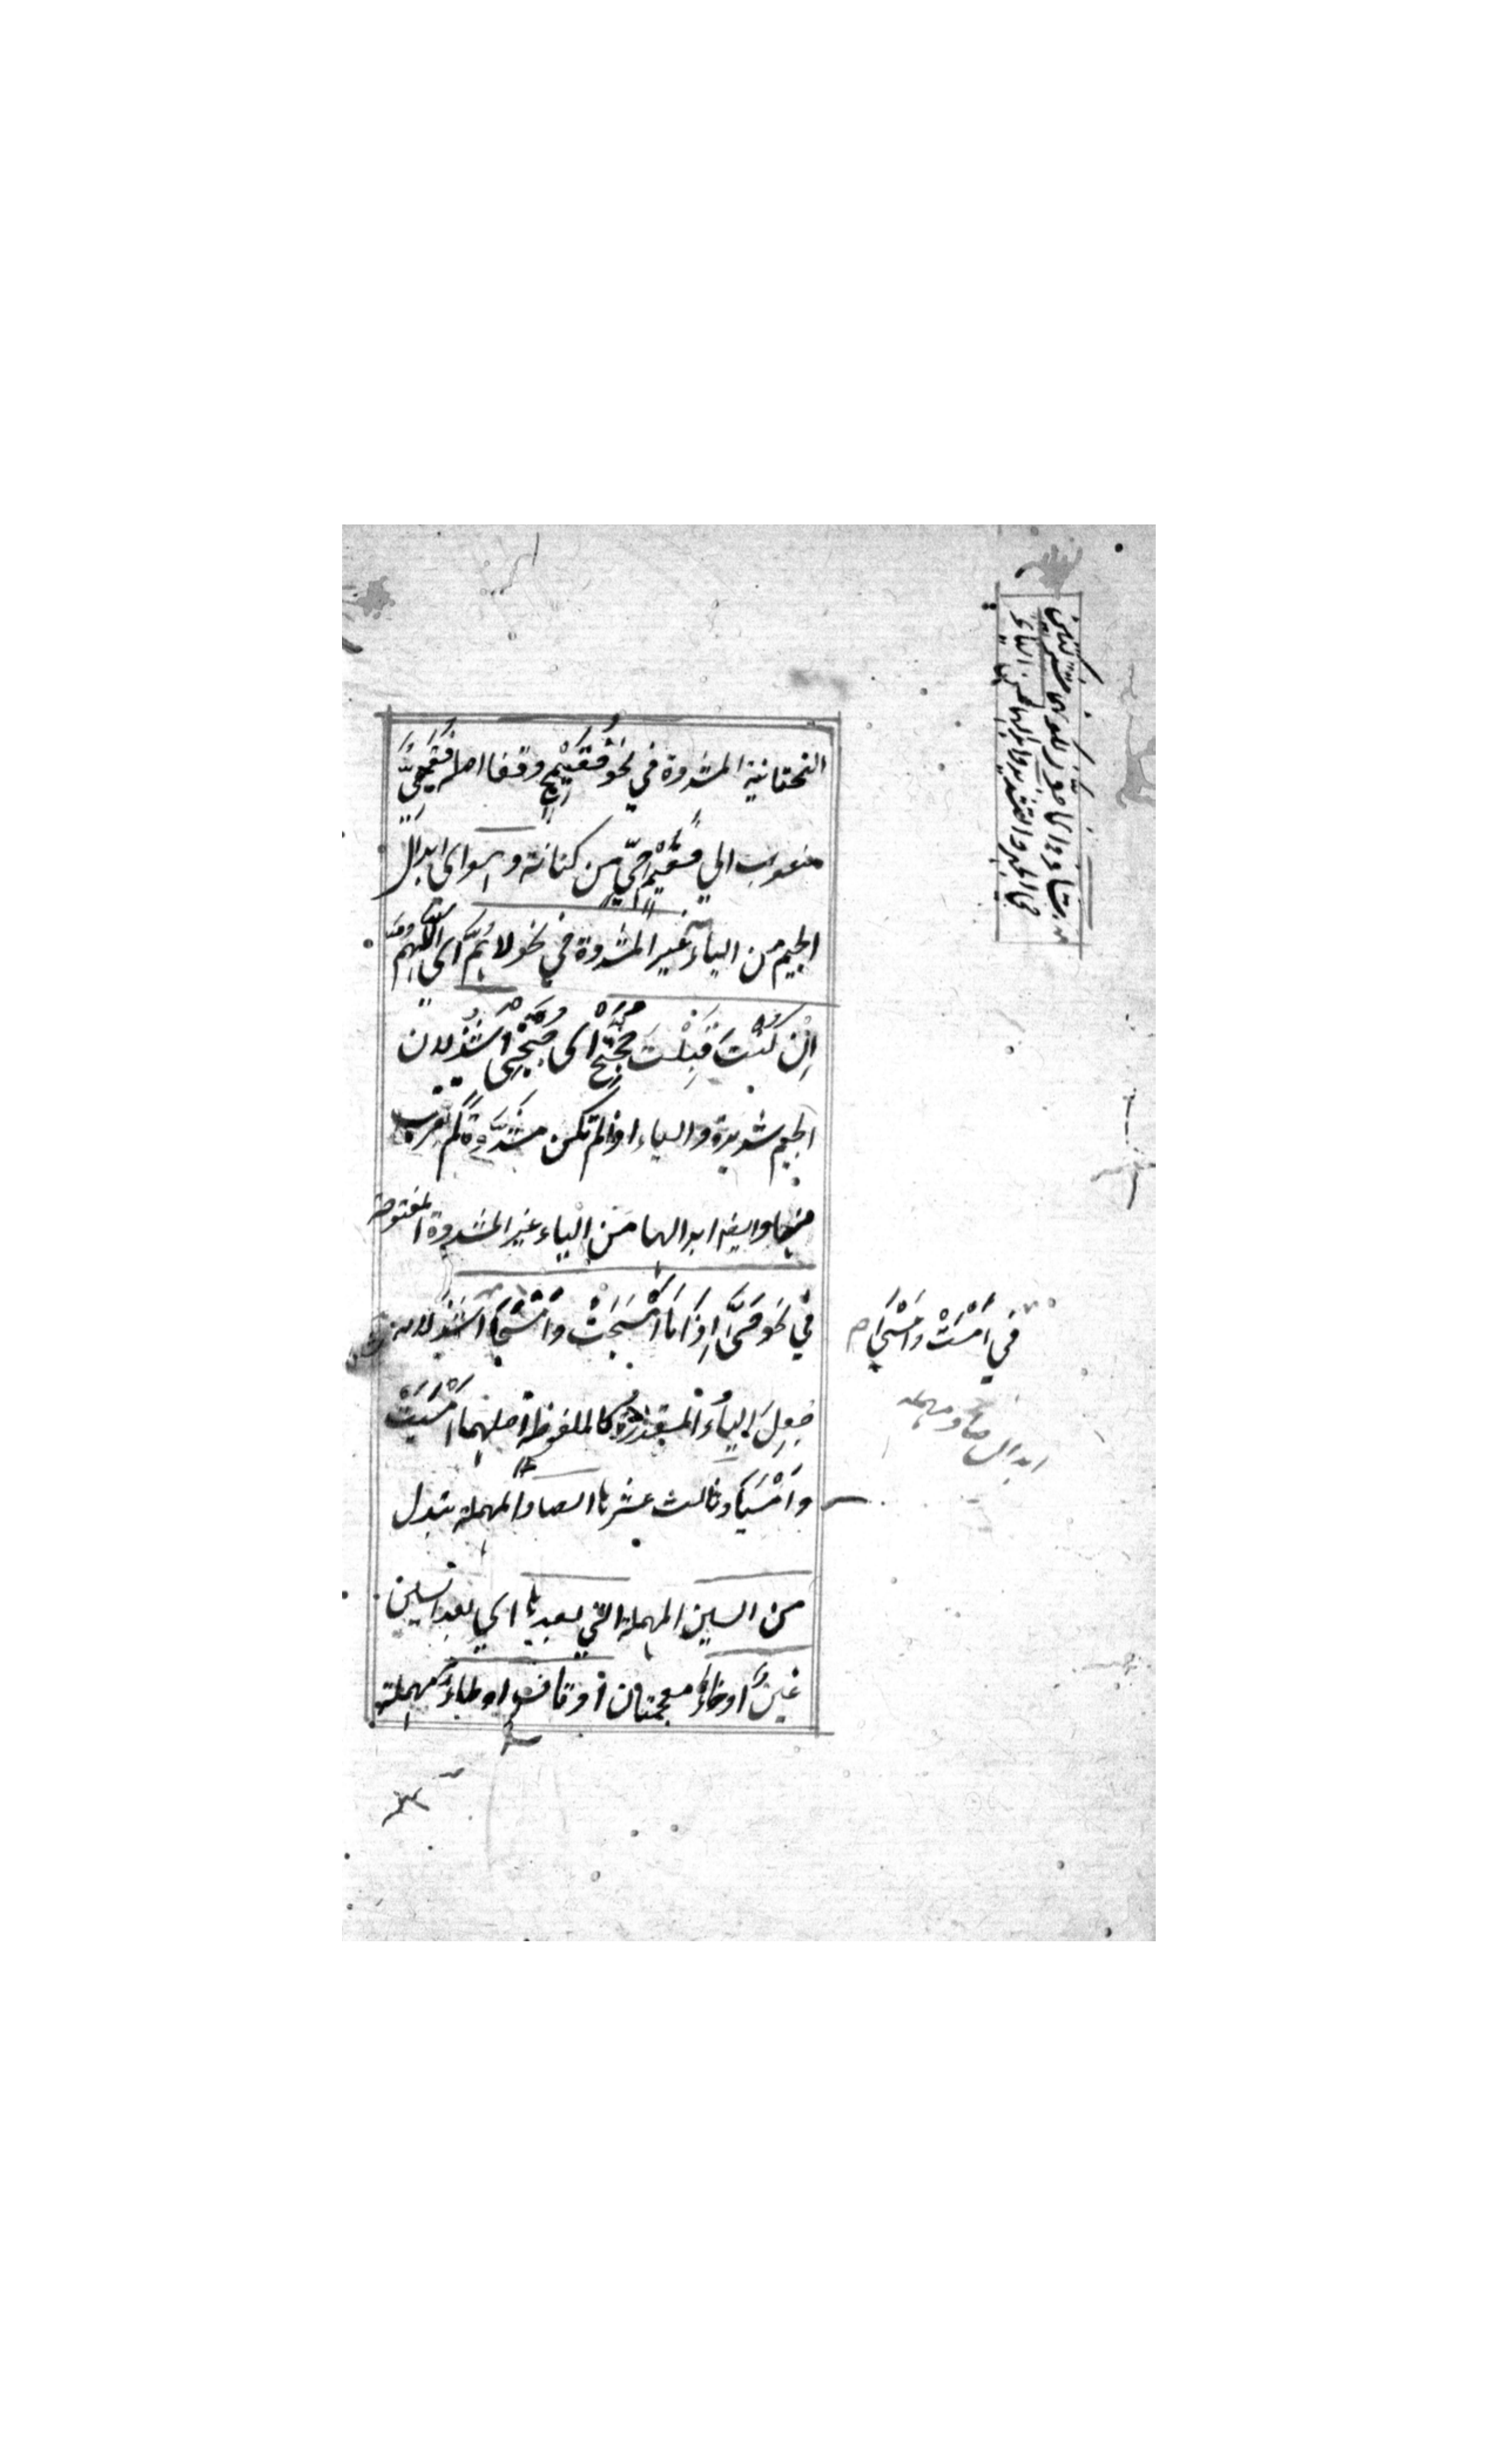 التحتانية المشددة في نحو فُقَيْمِجّ وقفا اصله فُقَيْمِيٌّ
منسوب الي فُقَيْمٍ حيّ من كنانة وهو اى ابدال
الجيم من الياء غير المشددة في نحو لاهُمَّ اى اللّهُمَّ
اِنْ كُنْتَ قَبِلْتَ حِجَّتِجْ اى حِجَّتِى اَشَذُّ لان
الجيم شديدة والياء اذا لم تكن مشددة لم تقرب
منها وايضا ابدالها من الياء غير المشددة المفتوحة
في نحو حَتّٰى اِذَا مَا اَمْسَجَتْ وَاَمْسَجَا اَشَذُّ لانه
جُعِلَ الياءُ المقدرة كالملفوظة اصلهما اَمْسَيَتْ
وَاَمْسَيَا وثالث عشرها الصاد المهملة تبدل
من السين المهملة التي بعدها اي بعد السين
غينٌ او خاءٌ معجمتان او قافٌ او طاءٌ مهملة
في اَمْسَتْ وَاَمْسَيَا
ابدال صاد مهمله